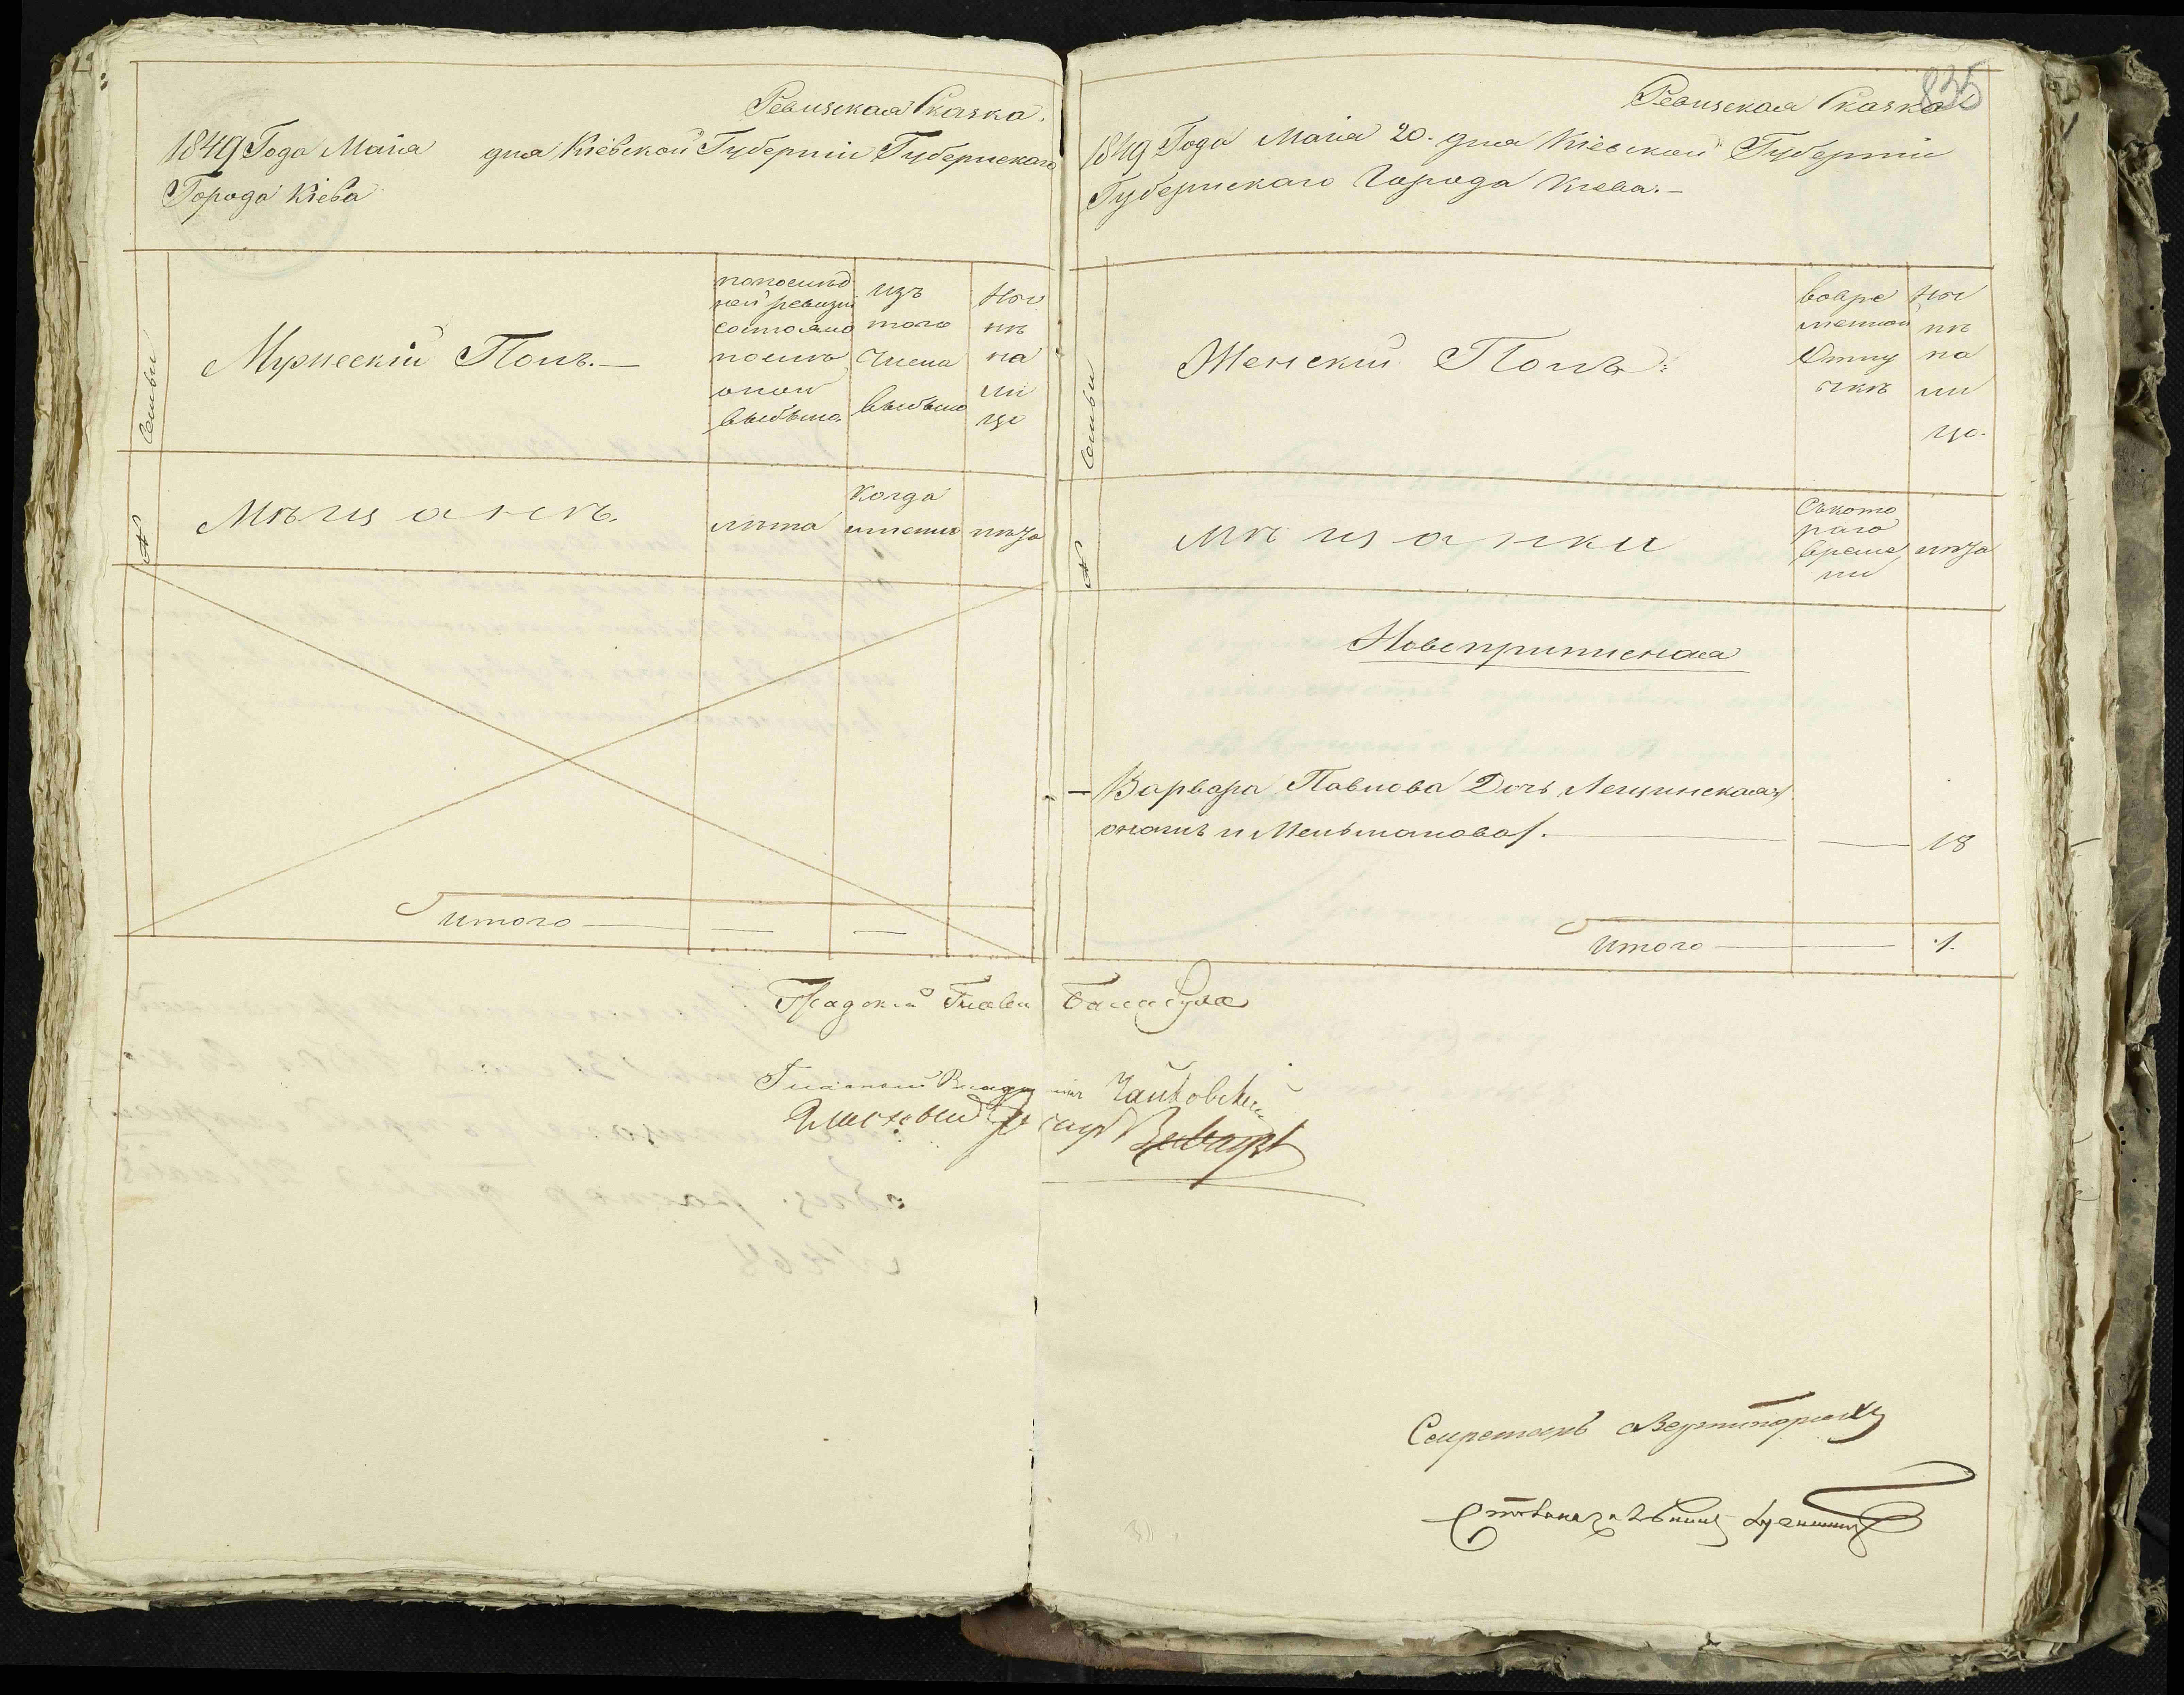 Ревизская Сказка.
1849 Года Маія дня Кіевской Губерніи Губернскаго
Города Кіева
Семьи
Мужескій Полъ.—
по послѣд
ней ревизіи
состояло
и послѣ
оной
выбыло
изъ
того
числа
выбыло
Ны
нѣ
на
ли
цо
№
Мѣщанъ.
лѣта
Когда
имянно
лѣта
Итого — — —
835
Ревизская Сказка
1849 Года Маія 20. дня Кіевской Губерніи
Губернскаго Города Кіева.—
Семьи
Женскій Полъ:
во вре
менной
Отлу
чкѣ
Ны
нѣ
на
ли
цо.
№
Мѣщанки
Съ кото
раго
време
ни
лѣта
Новоприписная
— Варвара Павлова Дочь Лещинская /
онажъ и Мельманова /. — — 18
Итого — — 1.
Градской Глава
Гласный
Чайковскій
Секретарь